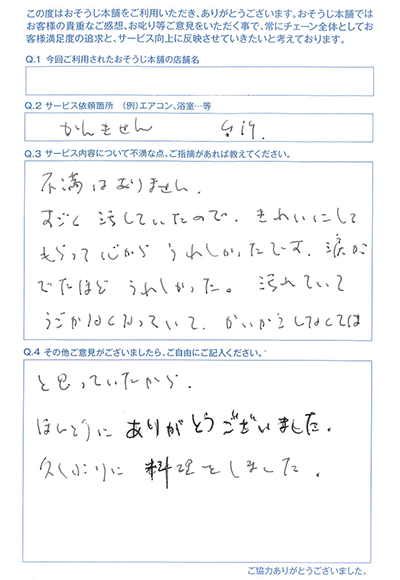 この度はおそうじ本舗をご利用いただき、ありがとうございます。おそうじ本舗では
お客様の貴重なご感想、お叱り等ご意見をいただく事で、常にチェーン全体としてお
客様満足度の追求と、サービス向上に反映させていきたいと考えております。
Q.1 今回ご利用されたおそうじ本舗の店舗名
Q.2 サービス依頼箇所 （例）エアコン、浴室…等
かんきせん
Q.3 サービス内容について不満な点、ご指摘があれば教えてください。
不満はありません.
すごく 汚していたので. きれいにして
もらって心から うれしかったです. 涙が
でたほど うれしかった。 汚れていて
うごかなくなっていて. かいかえしなくては
Q.4 その他ご意見がございましたら、ご自由にご記入ください。
と思っていたから.
ほんとうに ありがとうございました.
久しぶりに 料理をしました.
ご協力ありがとうございました。